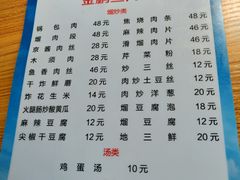 熘炒类
锅包肉 48元
熘肉段 48元
京酱肉丝 48元
木须肉 28元
鱼香肉丝 46元
干炸鲜蘑 20元
炸花生米 14元
火腿肠炒酸黄瓜 20元
麻辣豆腐 12元
尖椒干豆腐 12元
焦烧肉条 48元
麻辣肉片 46元
滑熘肉片 46元
芹菜粉 18元
肉炒土豆丝 18元
肉炒洋葱 20元
熘豆腐泡 18元
熘三鲜 20元
地三鲜 20元
汤类
鸡蛋汤 10元